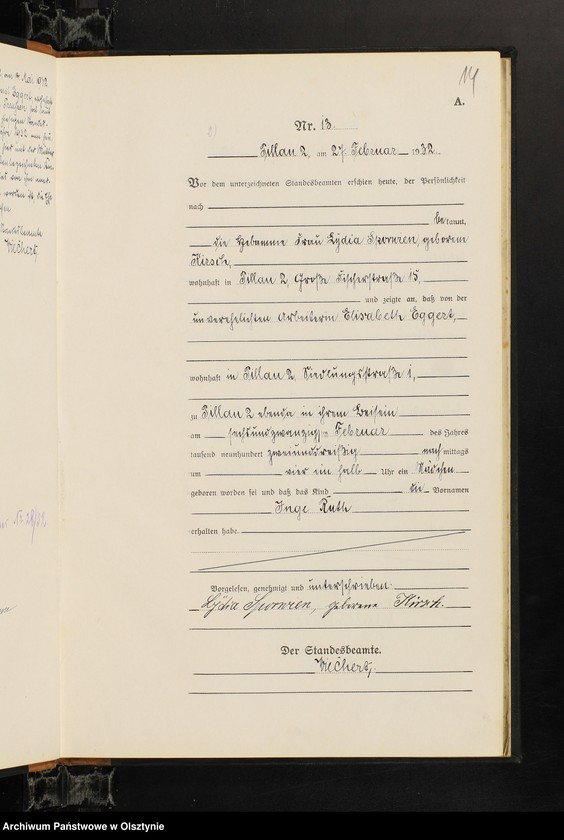 14
A.
Nr. 13.
Pillau 2, am 27. Februar 1932.
Vor dem unterzeichneten Standesbeamten erschien heute, der Persönlichkeit
nach
bekannt,
die Hebamme Frau Lydia geborene
Kirsch,
wohnhaft in Pillau 2, Große Fischerstraße 15,
und zeigte an, daß von der
unverehelichten Arbeiterin Elisabeth Eggert,
wohnhaft in Pillau 2, Siedlungsstraße 1,
zu Pillau 2 ebenda in ihrem Beisein
am sechsundzwanzigsten Februar des Jahres
tausend neunhundert zweiunddreißig nachmittags
um vier ein halb Uhr ein Mädchen
geboren worden sei und daß das Kind die Vornamen
Inge Ruth
erhalten habe.
Vorgelesen, genehmigt und unterschrieben:
Lydia geborene Kirsch.
Der Standesbeamte.
Nr 28/32
Archiwum Państwowe w Olsztynie